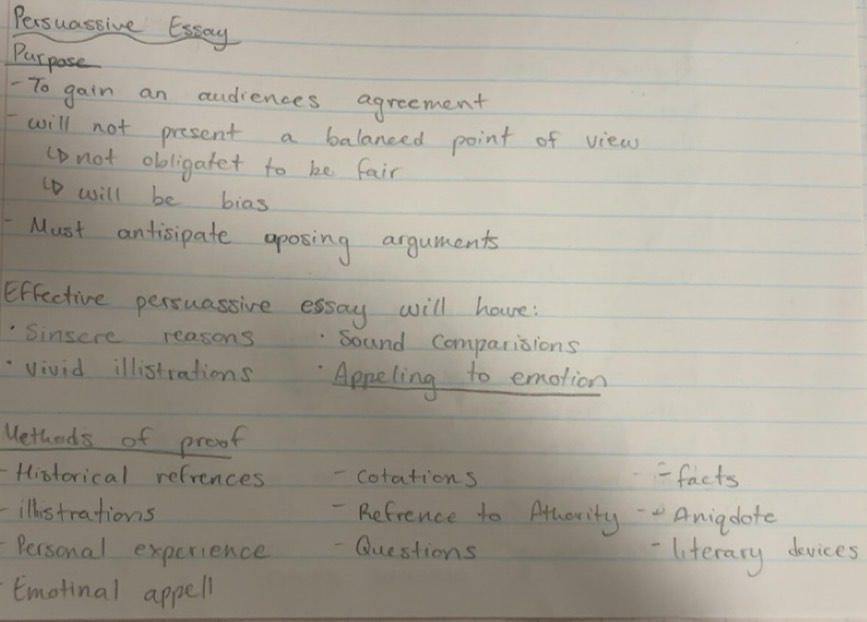 Persuassive Essay
Purpose
- To gain an audiences agreement
- will not present a balanced point of view
↳ not obligatet to be fair
↳ will be bias
- Must antisipate aposing arguments
Effective persuassive essay will have:
· Sinsere reasons · Sound Comparisions
· Vivid illistrations · Appeling to emotion
Methods of proof
- Historical refrences - cotations - facts
- illistrations - Refrence to Athority - Aniqdote
- Personal experience - Questions - literary devices
- Emotinal appell